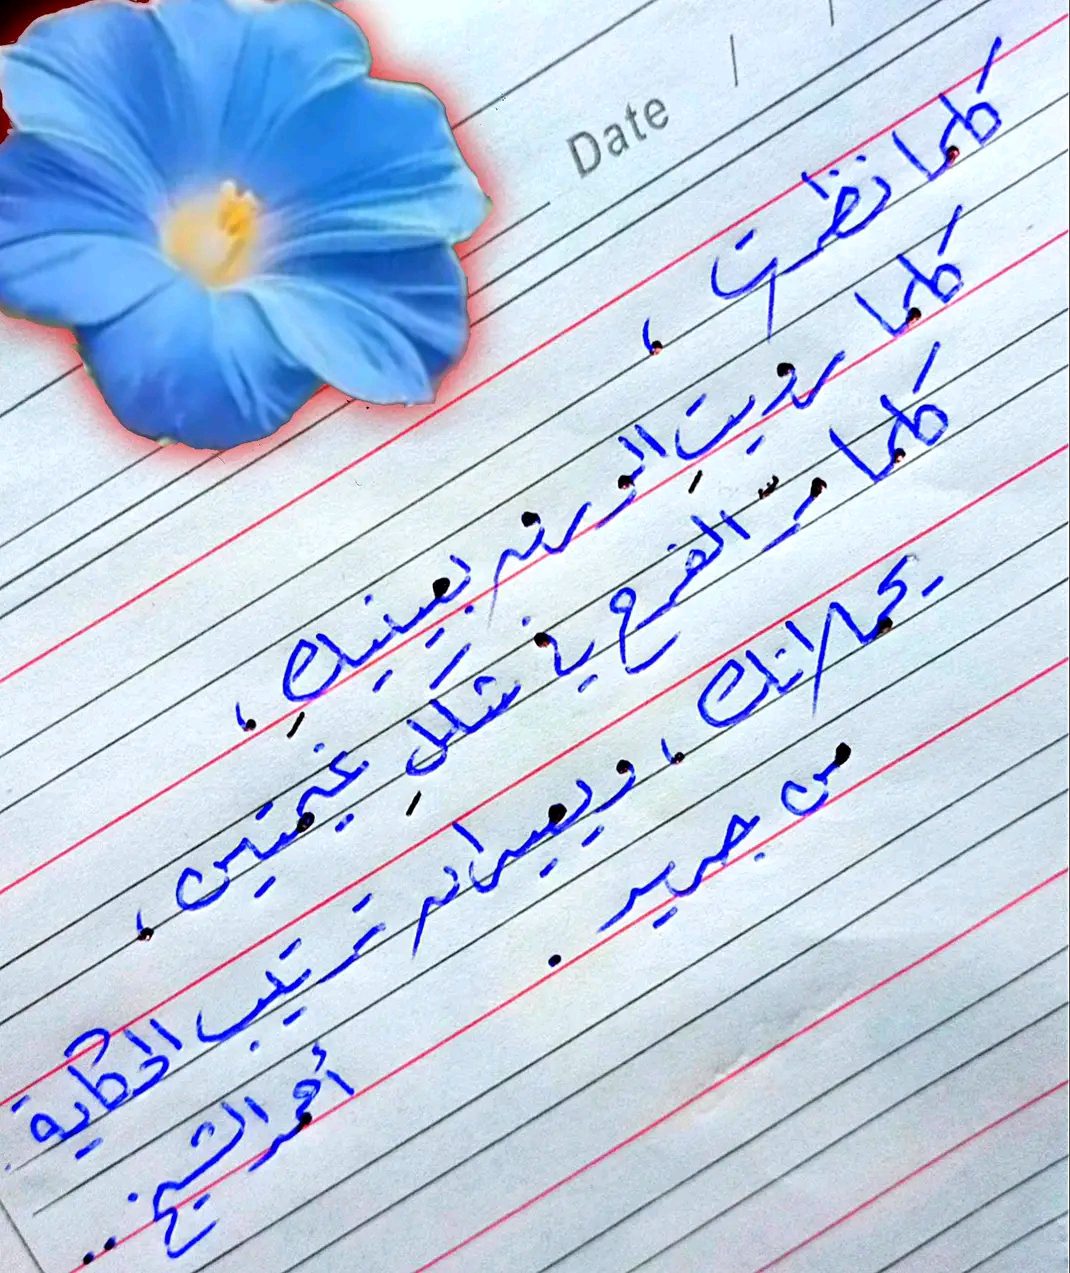 Date / /
كلما نظرت ،
كلما رويتِ بعينيكِ ،
كلما مرّ الفرح في شكلِ غيمتين ،
يحملانك ، ويعيدان ترتيب الحكاية
من جديد .
أحمد الشيخ ..